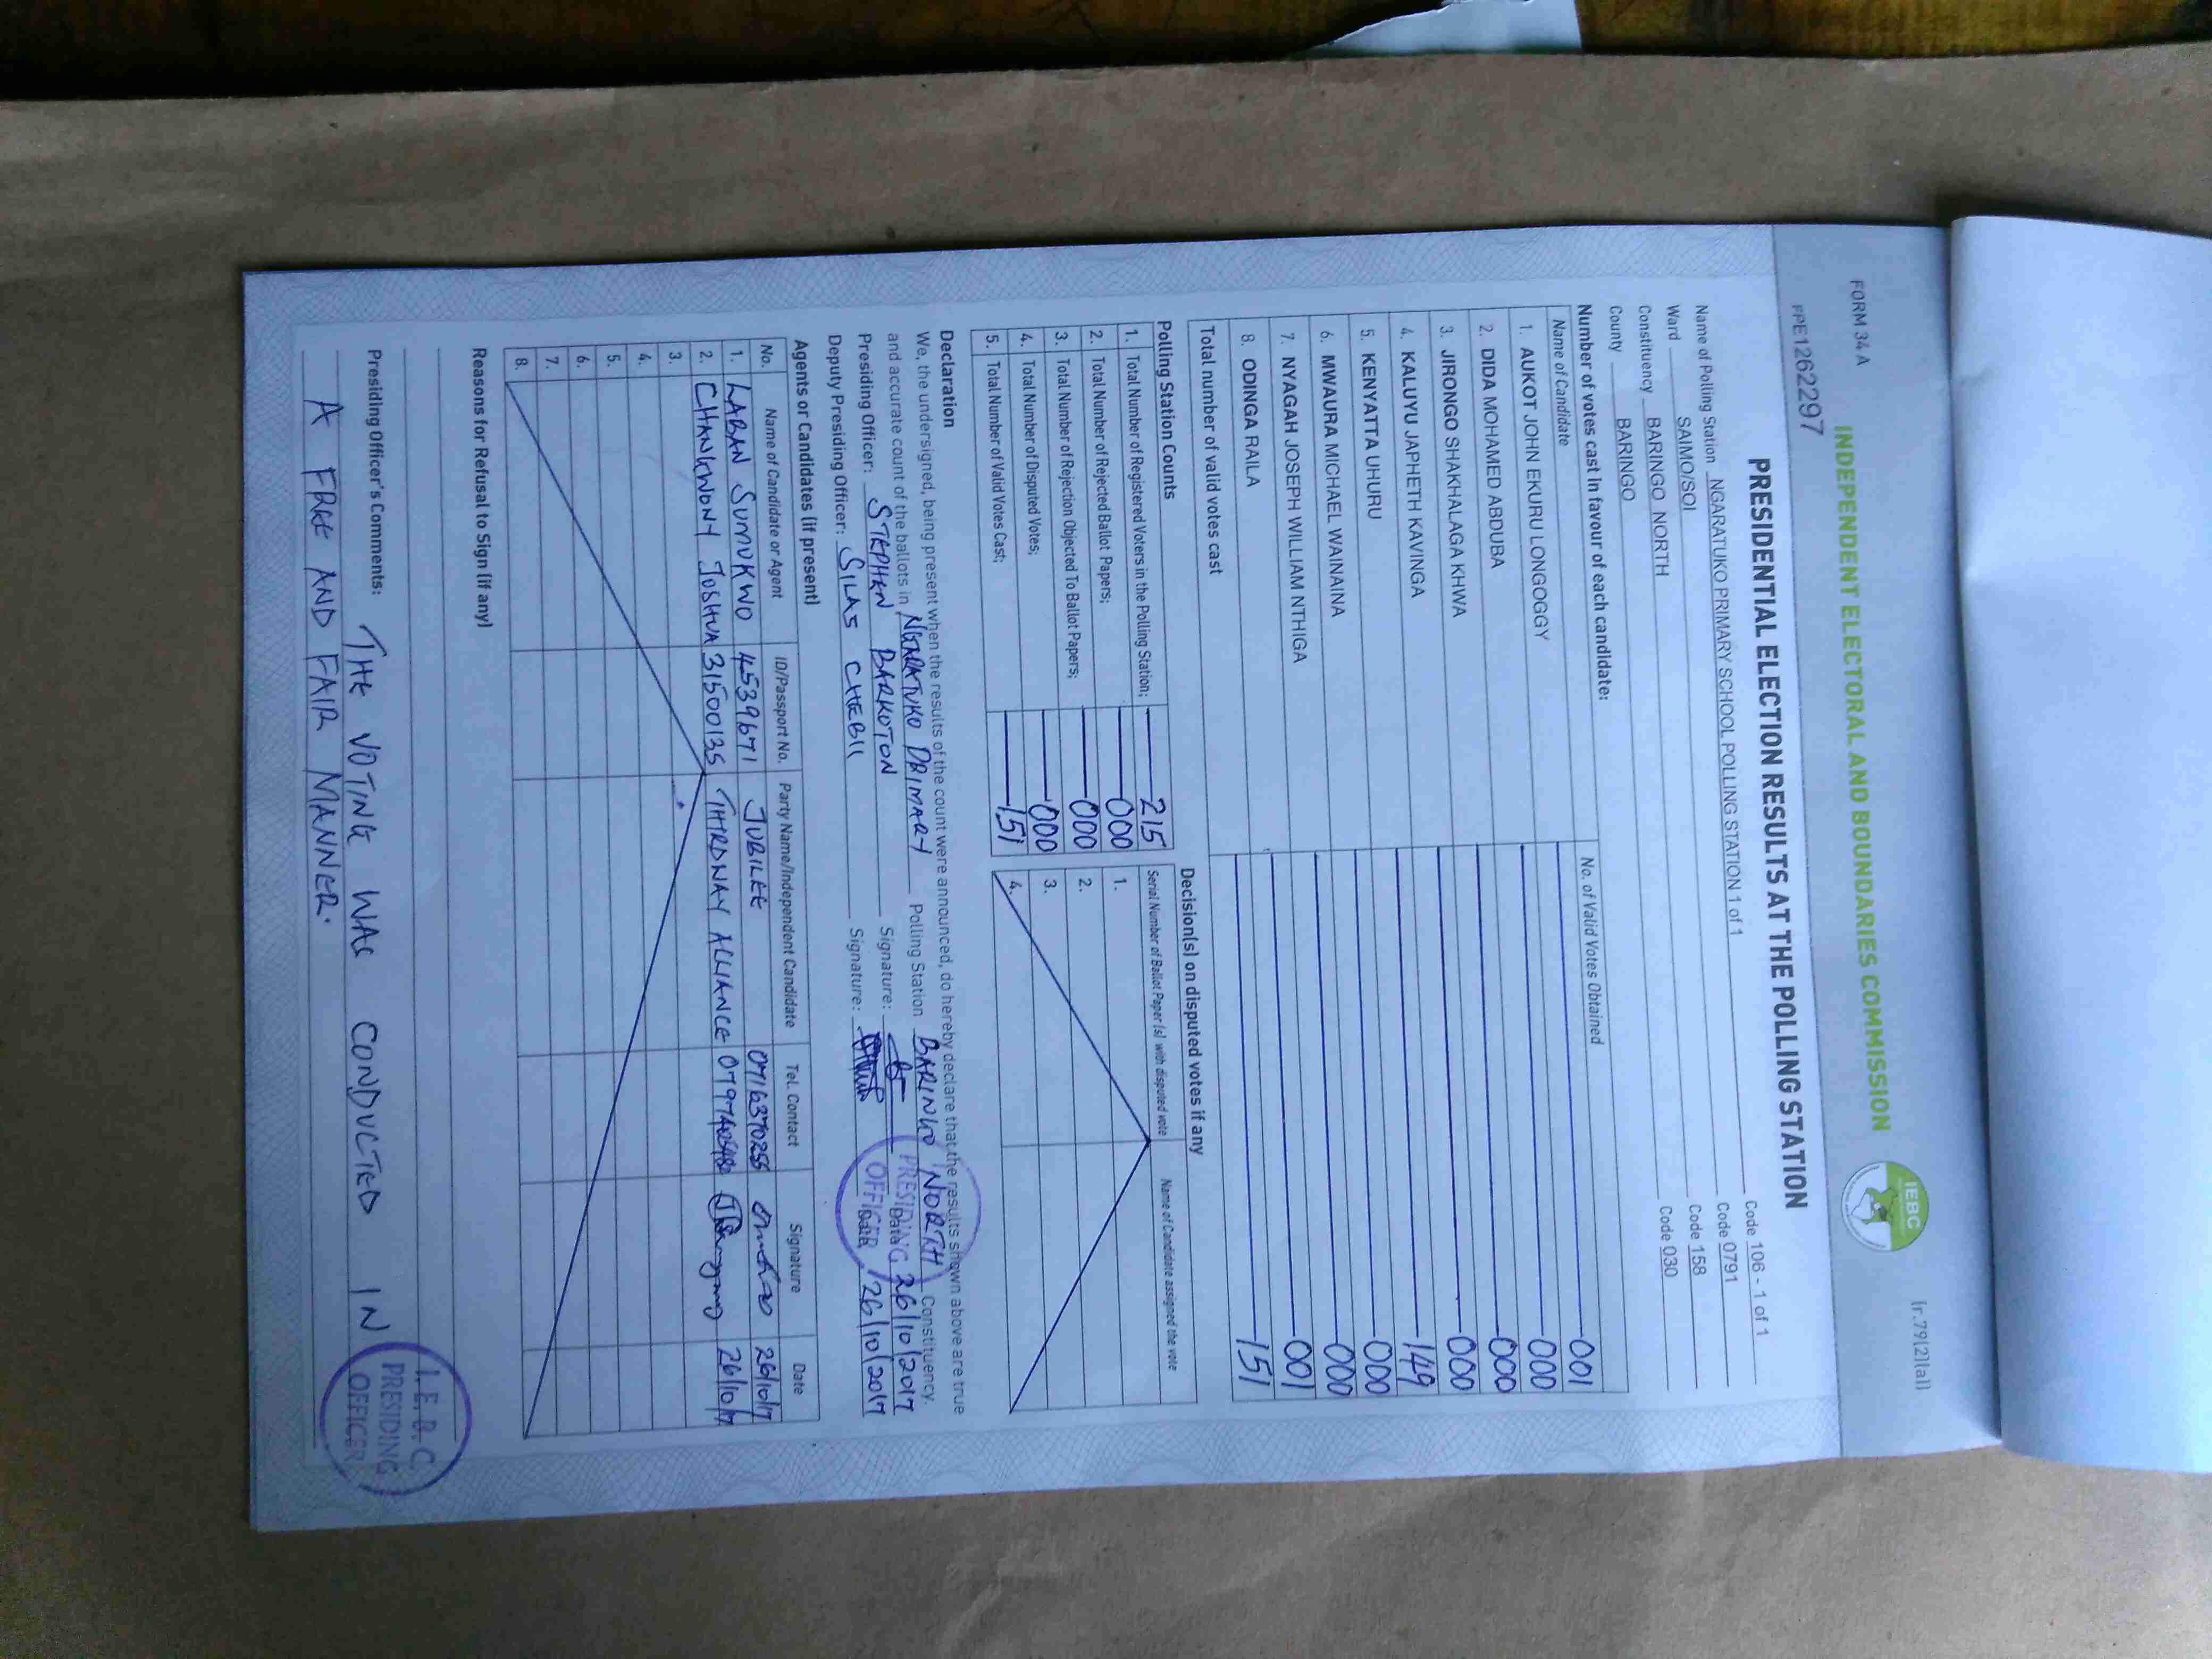 FORM 34 A
[r.79(2)(a)]
INDEPENDENT ELECTORAL AND BOUNDARIES COMMISSION
IEBC
PPE1262297
PRESIDENTIAL ELECTION RESULTS AT THE POLLING STATION
Name of Polling Station NGARATUKO PRIMARY SCHOOL POLLING STATION 1 of 1 Code 106 - 1 of 1
Ward SAIMO/SOI Code 0791
Constituency BARINGO NORTH Code 158
County BARINGO Code 030
Number of votes cast in favour of each candidate:
Name of Candidate No. of Valid Votes Obtained
1. AUKOT JOHN EKURU LONGOGGY 001
2. DIDA MOHAMED ABDUBA 000
3. JIRONGO SHAKHALAGA KHWA 000
4. KALUYU JAPHETH KAVINGA 000
5. KENYATTA UHURU 149
6. MWAURA MICHAEL WAINAINA 000
7. NYAGAH JOSEPH WILLIAM NTHIGA 000
8. ODINGA RAILA 001
Total number of valid votes cast 151
Polling Station Counts
1. Total Number of Registered Voters in the Polling Station; 215
2. Total Number of Rejected Ballot Papers; 000
3. Total Number of Rejection Objected To Ballot Papers; 000
4. Total Number of Disputed Votes; 000
5. Total Number of Valid Votes Cast; 151
Decision(s) on disputed votes if any
Serial Number of Ballot Paper (s) with disputed vote Name of Candidate assigned the vote
1.
2.
3.
4.
Declaration
We, the undersigned, being present when the results of the count were announced, do hereby declare that the results shown above are true
and accurate count of the ballots in NGARATUKO PRIMARY Polling Station BARINGO NORTH Constituency.
Presiding Officer: STEPHEN BARKOTON Signature: Date 26/10/2017
Deputy Presiding Officer: SILAS CHEBII Signature: Date 26/10/2017
PRESIDING
OFFICER
Agents or Candidates (if present)
No. Name of Candidate or Agent ID/Passport No. Party Name/Independent Candidate Tel. Contact Signature Date
1. LABAN SUMUKWO 4539671 JUBILEE 0716370255 26/10/17
2. CHANGWONY JOSHUA 31500135 THIRDWAY ALLIANCE 26/10/17
3.
4.
5.
6.
7.
8.
Reasons for Refusal to Sign (if any)
Presiding Officer's Comments: THE VOTING WAS CONDUCTED IN
A FREE AND FAIR MANNER.
I.E.B.C
PRESIDING
OFFICER